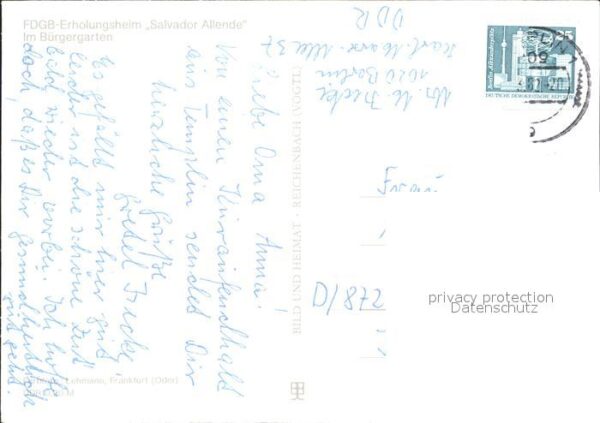 FDGB-Erholungsheim „Salvador Allende"
Im Bürgergarten
Liebe Oma Anna!
Von einem Kuraufenthalt
aus Templin sendet Dir
herzliche Grüße
Es gefällt mir hier gut,
leider ist die schöne Zeit
bald wieder vorbei. Ich hoffe
doch, daß es Dir gesundheitlich
gut geht.
Lehmann, Frankfurt (Oder)
BILD UND HEIMAT · REICHENBACH (VOGTL)
1020 Berlin
Karl-Marx-Allee 37
DDR
25
DEUTSCHE DEMOKRATISCHE REPUBLIK
Frau
D/872
privacy protection
Datenschutz